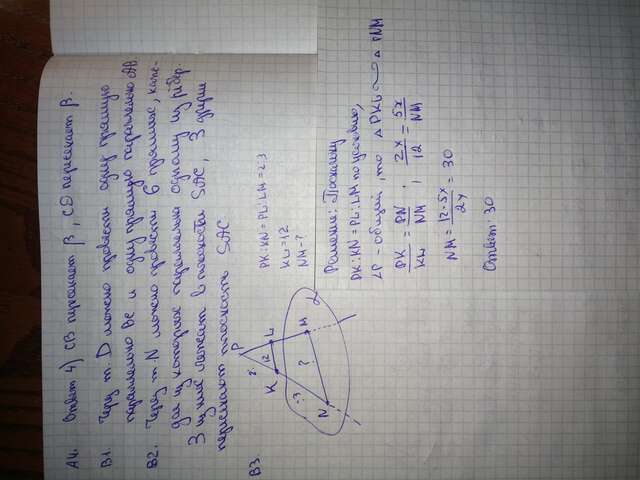 А4. Ответ 4) CB пересекает β, CD пересекает β.
В1. Через т. D можно провести одну прямую
параллельно BC и одну прямую параллельно AB.
В2. Через т. N можно провести 6 прямых, каж-
дая из которых параллельна одному из рёбер.
3 из них лежат в плоскости SAC, 3 другие
пересекают плоскость SAC
В3.
P
2
K 12 L
:3
?
N M
α
PK:KN=PL:LM=2:3
KL=12
NM-?
Решение: Поскольку
PK:KN=PL:LM по условию,
∠P - общий, то △PKL ∼ △PNM
PK/KL = PN/NM ; 2x/12 = 5x/NM
NM = 12·5x/2x = 30
Ответ: 30